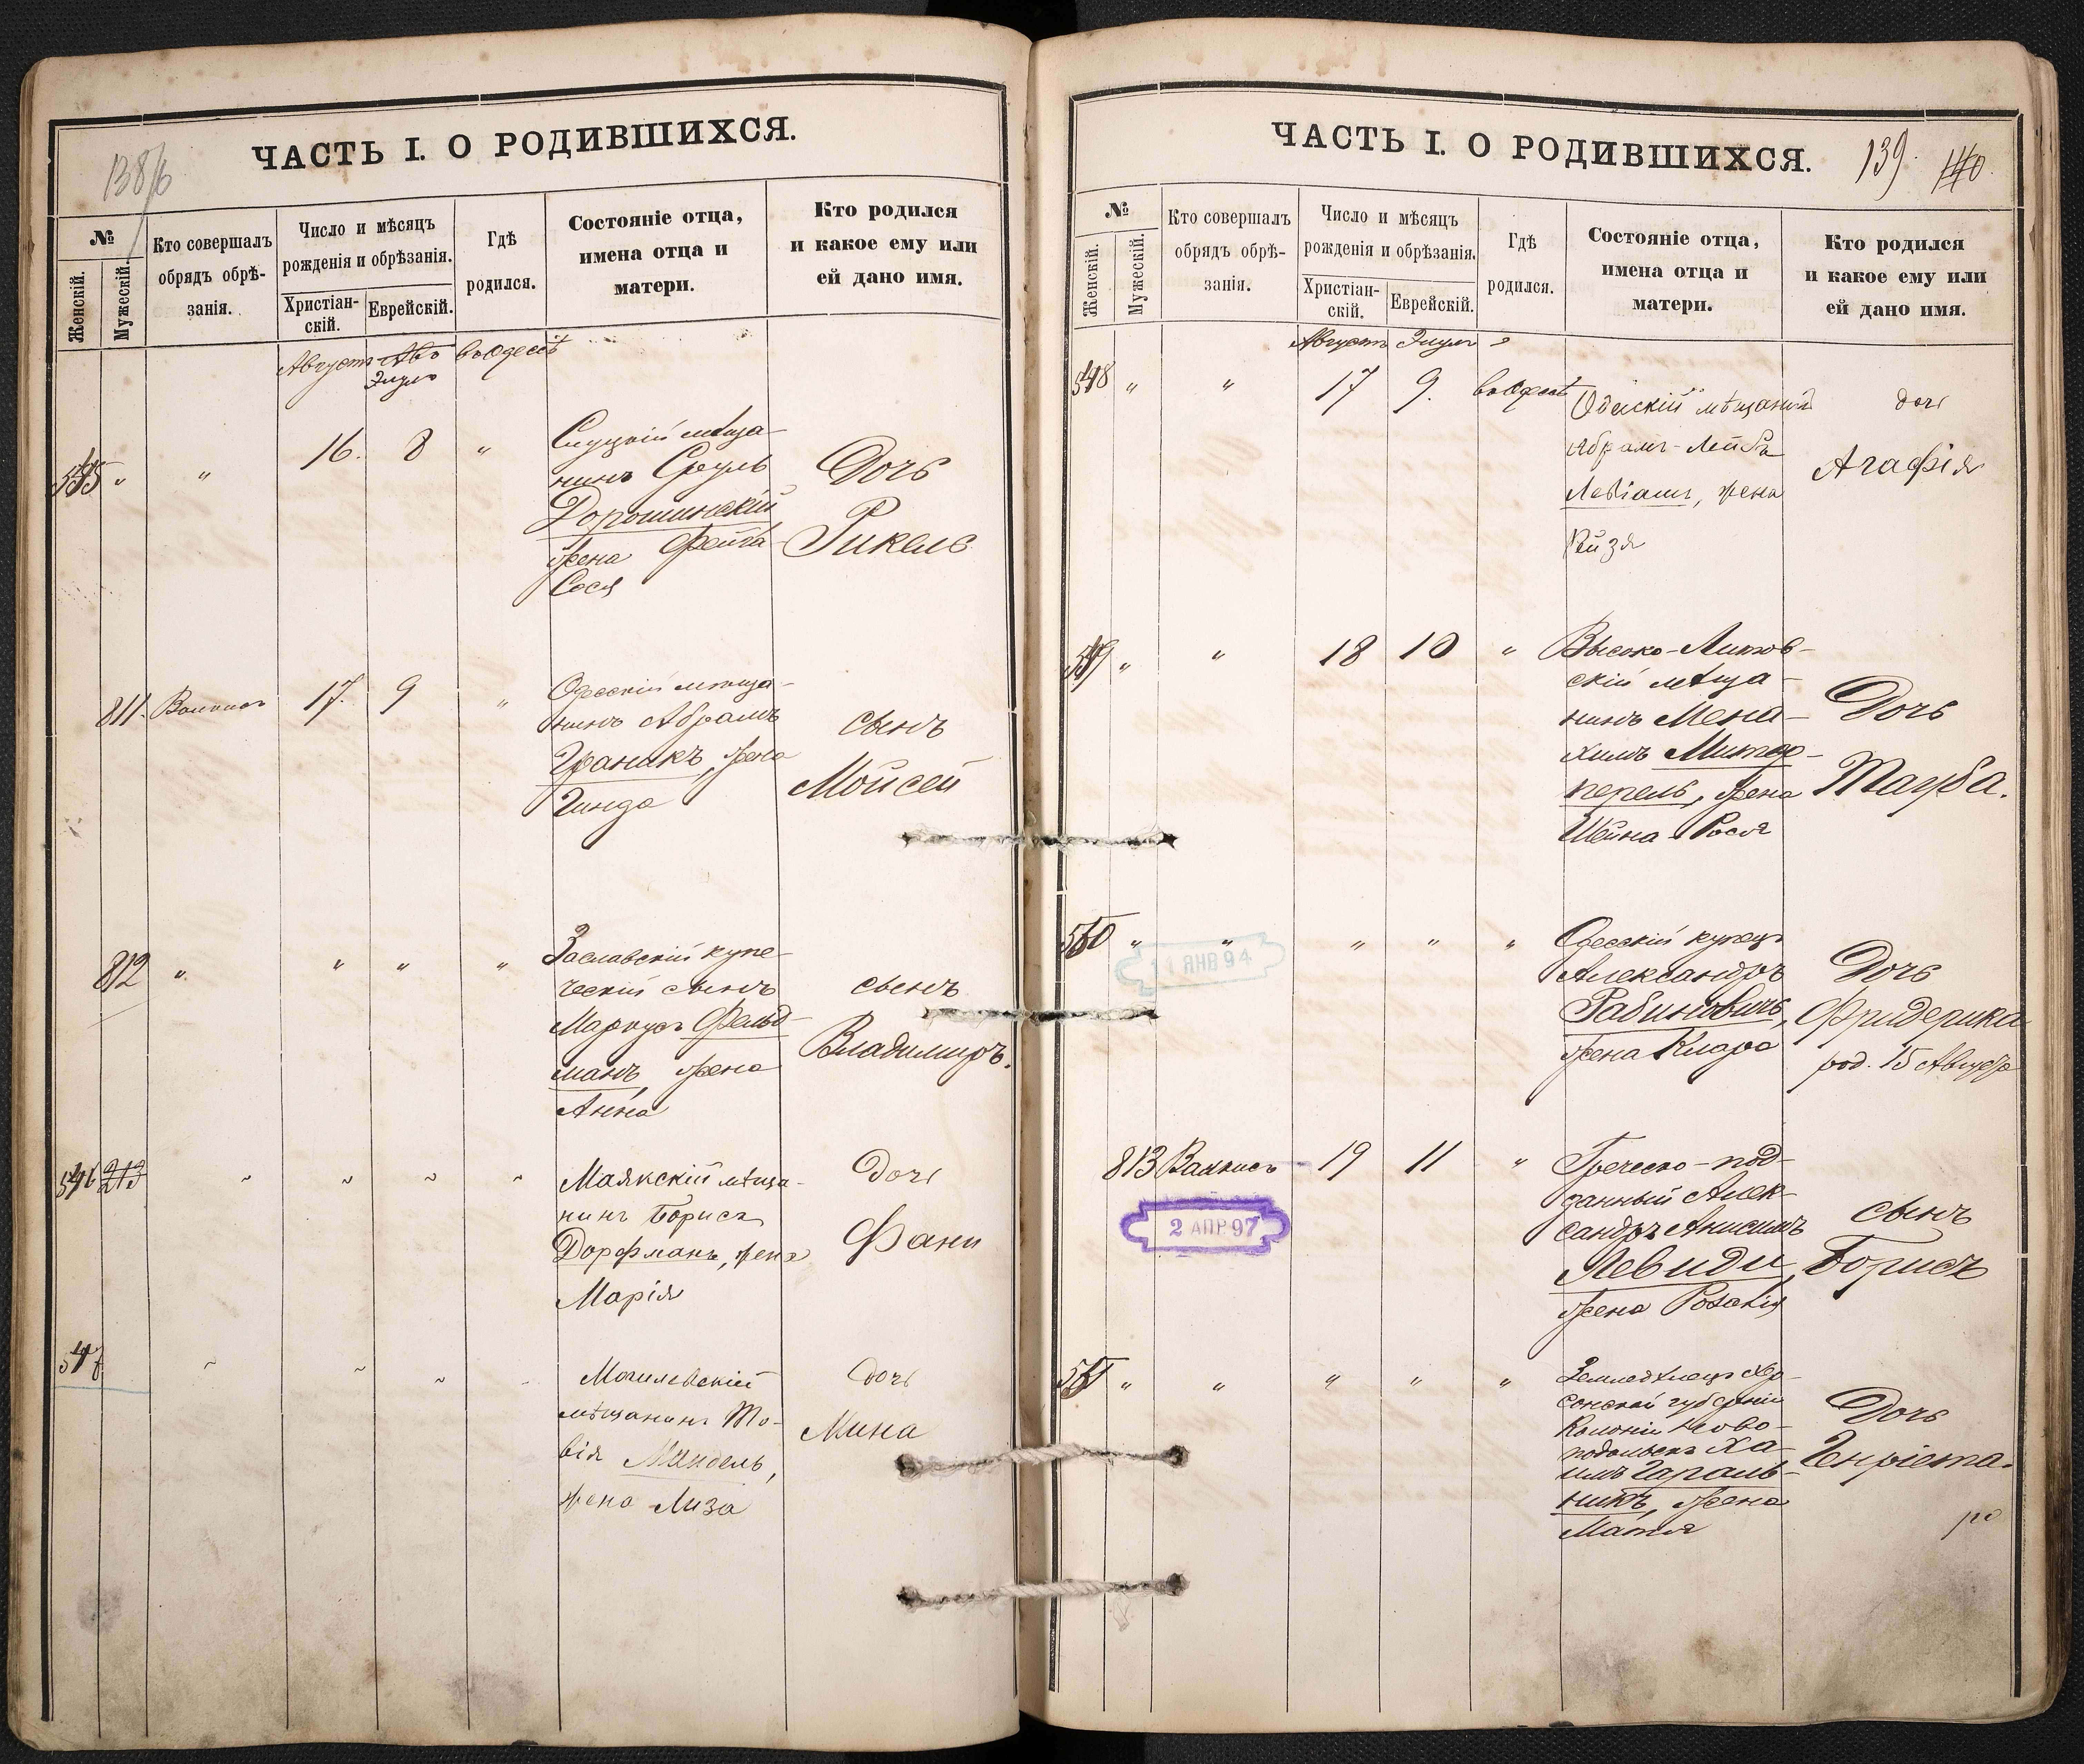 138/б
ЧАСТЬ I. О РОДИВШИХСЯ.
№
Женскій.
Мужескій.
Кто совершалъ
обрядъ обрѣ-
занія.
Число и мѣсяцъ
рожденія и обрѣзанія.
Христіан-
скій.
Еврейскій.
Гдѣ
родился.
Состояніе отца,
имена отца и
матери.
Кто родился
и какое ему или
ей дано имя.
Августъ Авъ въ Одессѣ
Элулъ
545 " " 16. 8 "
Слуцкій мѣща-
нинъ Сруль
Дорошинскій
жена Фейга-
Сося
Дочь
Рикель
811. 17. 9 "
Одесскій мѣща-
нинъ Абрамъ
Граникъ, жена
Гинда
сынъ
Мойсей
812 " " " "
Заславскій купе-
ческій сынъ
Маркусъ Фельд-
манъ, жена
Анна
сынъ
Владимиръ.
546 213
Маякскій мѣща-
нинъ Борисъ
Дорфманъ, жена
Марія
дочь
Фани
547
Могилевскій
мѣщанинъ То-
вія Мендель,
жена Лиза
дочь
Мина
ЧАСТЬ I. О РОДИВШИХСЯ.
139. 140.
№
Женскій.
Мужескій.
Кто совершалъ
обрядъ обрѣ-
занія.
Число и мѣсяцъ
рожденія и обрѣзанія.
Христіан-
скій.
Еврейскій.
Гдѣ
родился.
Состояніе отца,
имена отца и
матери.
Кто родился
и какое ему или
ей дано имя.
Августъ Элулъ
548 " " 17 9. въ Одессѣ
Одесскій мѣщанинъ
Абрамъ-Лейба
Левіамъ, жена
Рейзя
дочь
Агафія
549 " " 18 10 "
Высоко-Литов-
скій мѣща-
нинъ Мена-
химъ Митер-
перель, жена
Шейна-Рося
Дочь
Тауба.
550 " " " " "
11 ЯНВ 94
Одесскій купецъ
Александръ
Рабиновичъ,
жена Клара
Дочь
Фридерика
род. 15 Августа
813 19 11 "
2 АПР 97
Греческо-под-
данный Алек-
сандръ Анисимъ
Левиди,
жена Розалія
сынъ
Борисъ
551 " " " " "
Земледѣлецъ Хер-
сонской губерніи
Колоніи Ново-
подольскъ Ха-
имъ Гараль-
никъ, жена
Матля
Дочь
Генріета.